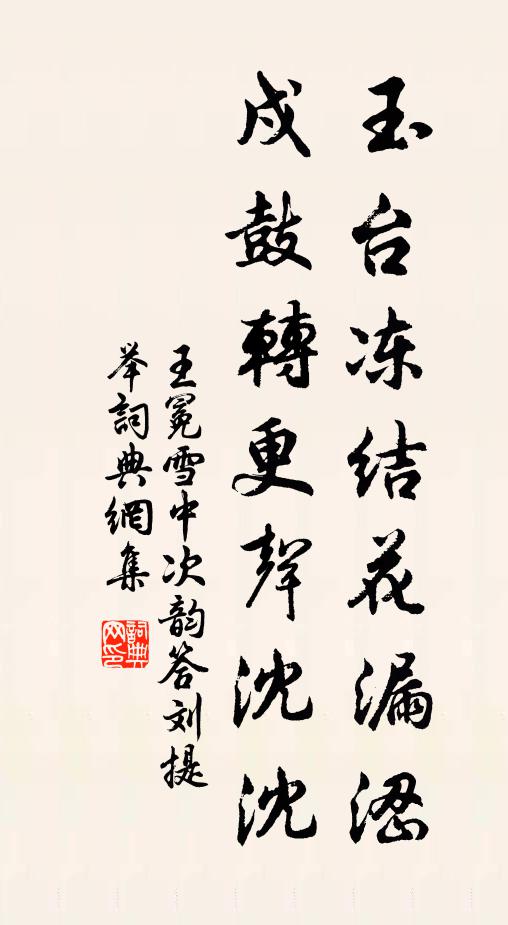 玉台冻结花漏涩
戍鼓轉更聲沈沈
王冕雪中次韵答刘提
举詞典網集
詞典
网印